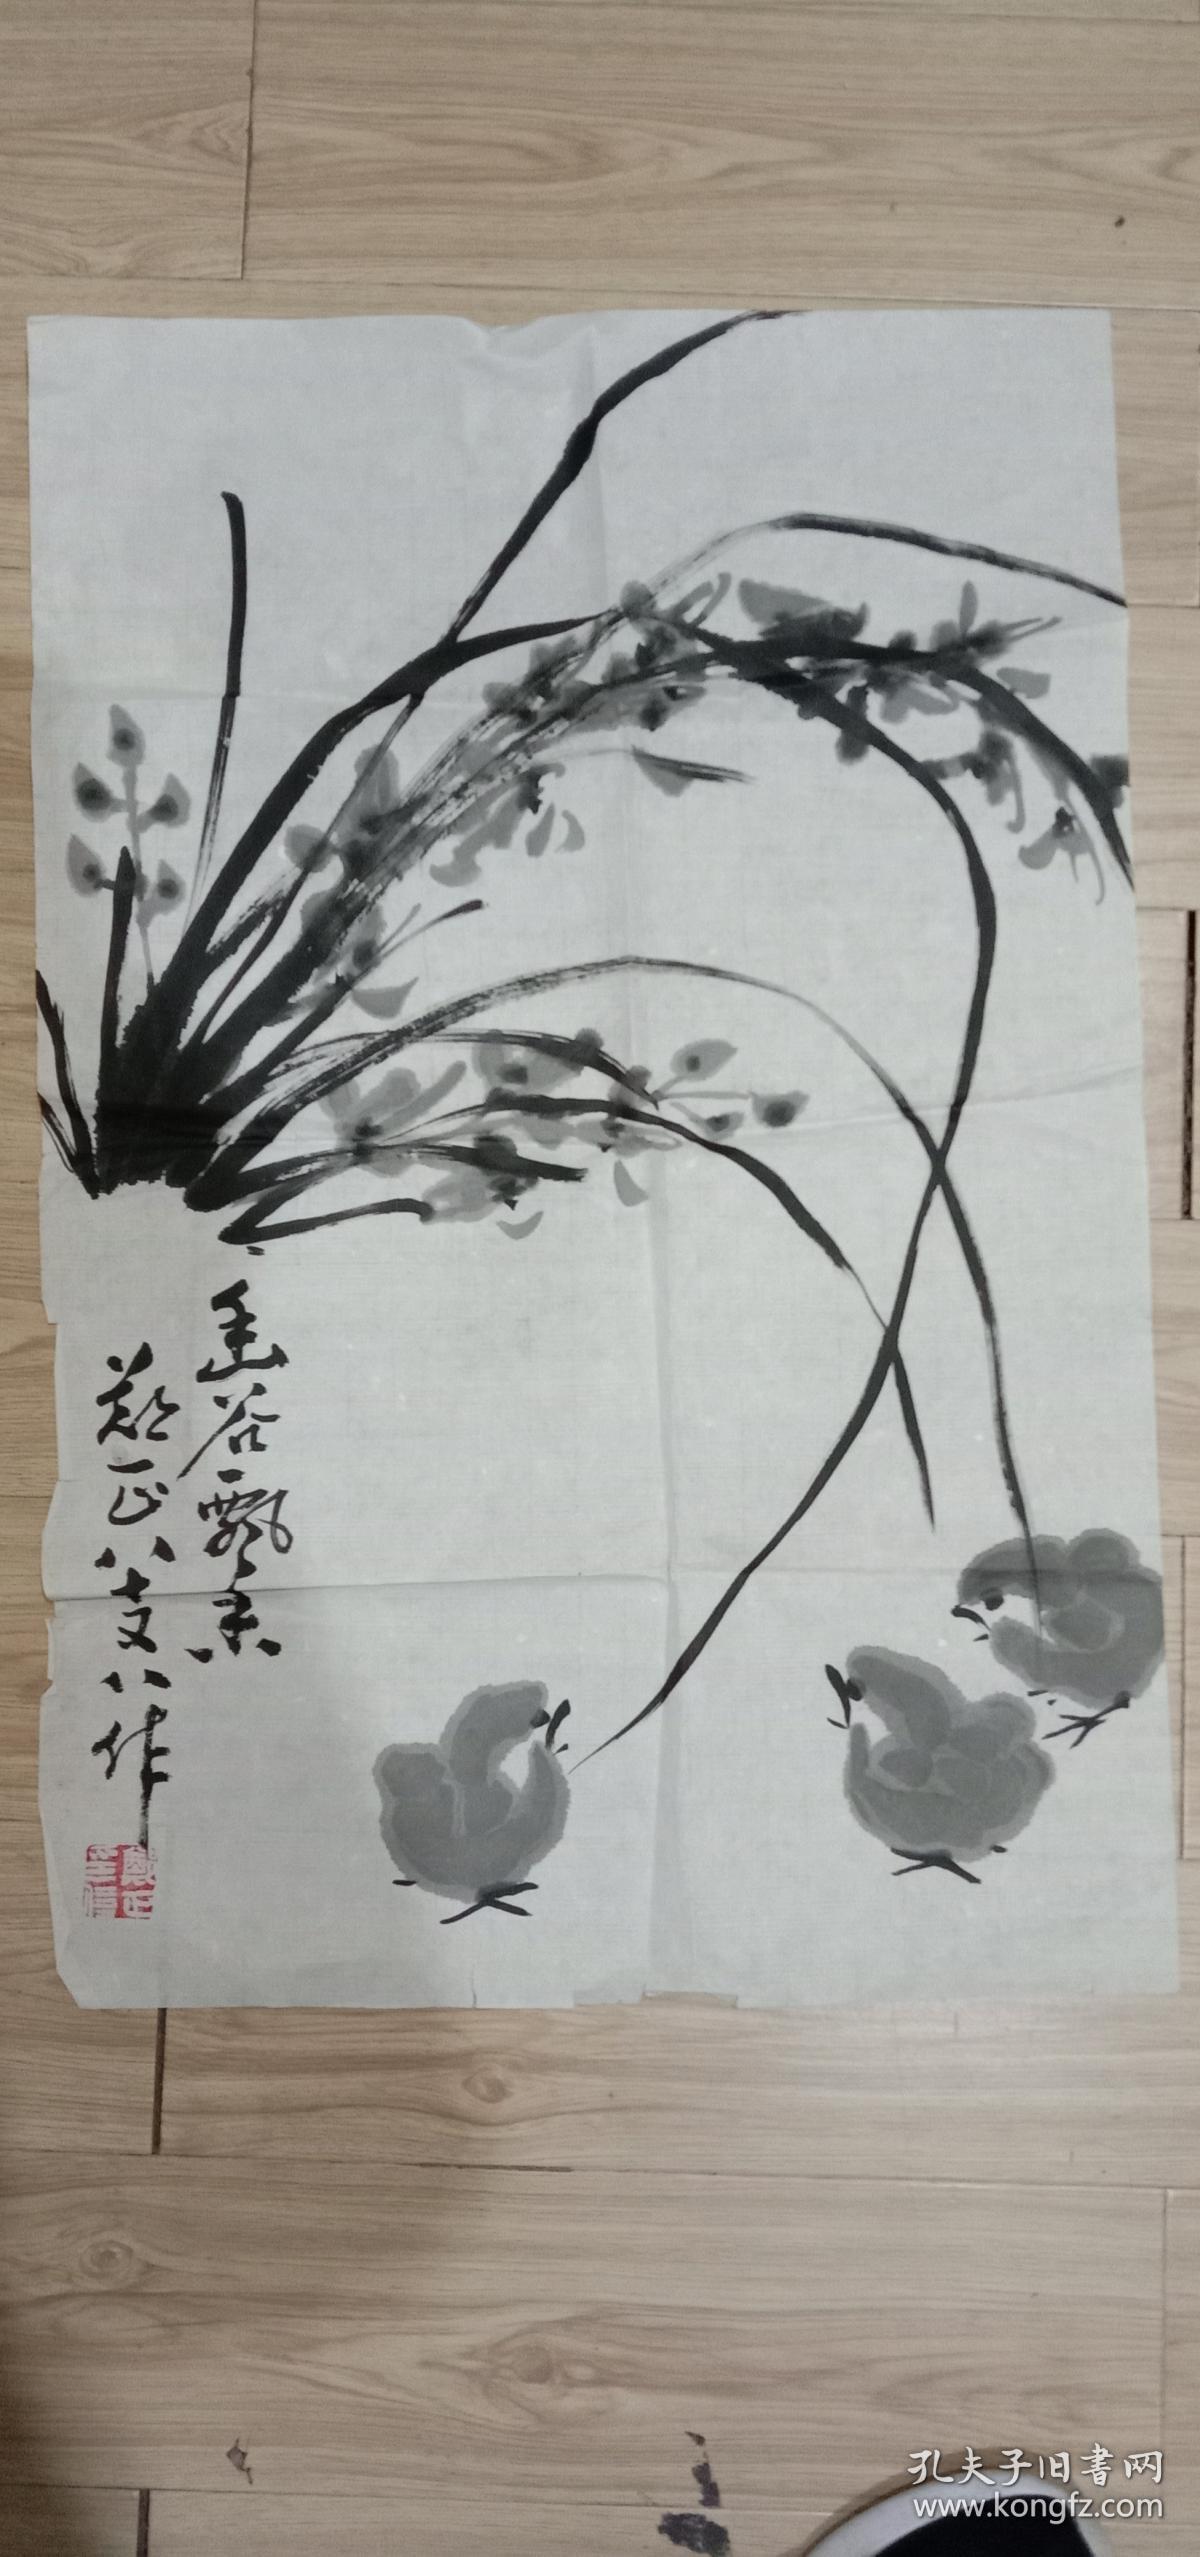 幽谷飘香
郑正八十又八作
孔夫子旧书网
www.kongfz.com